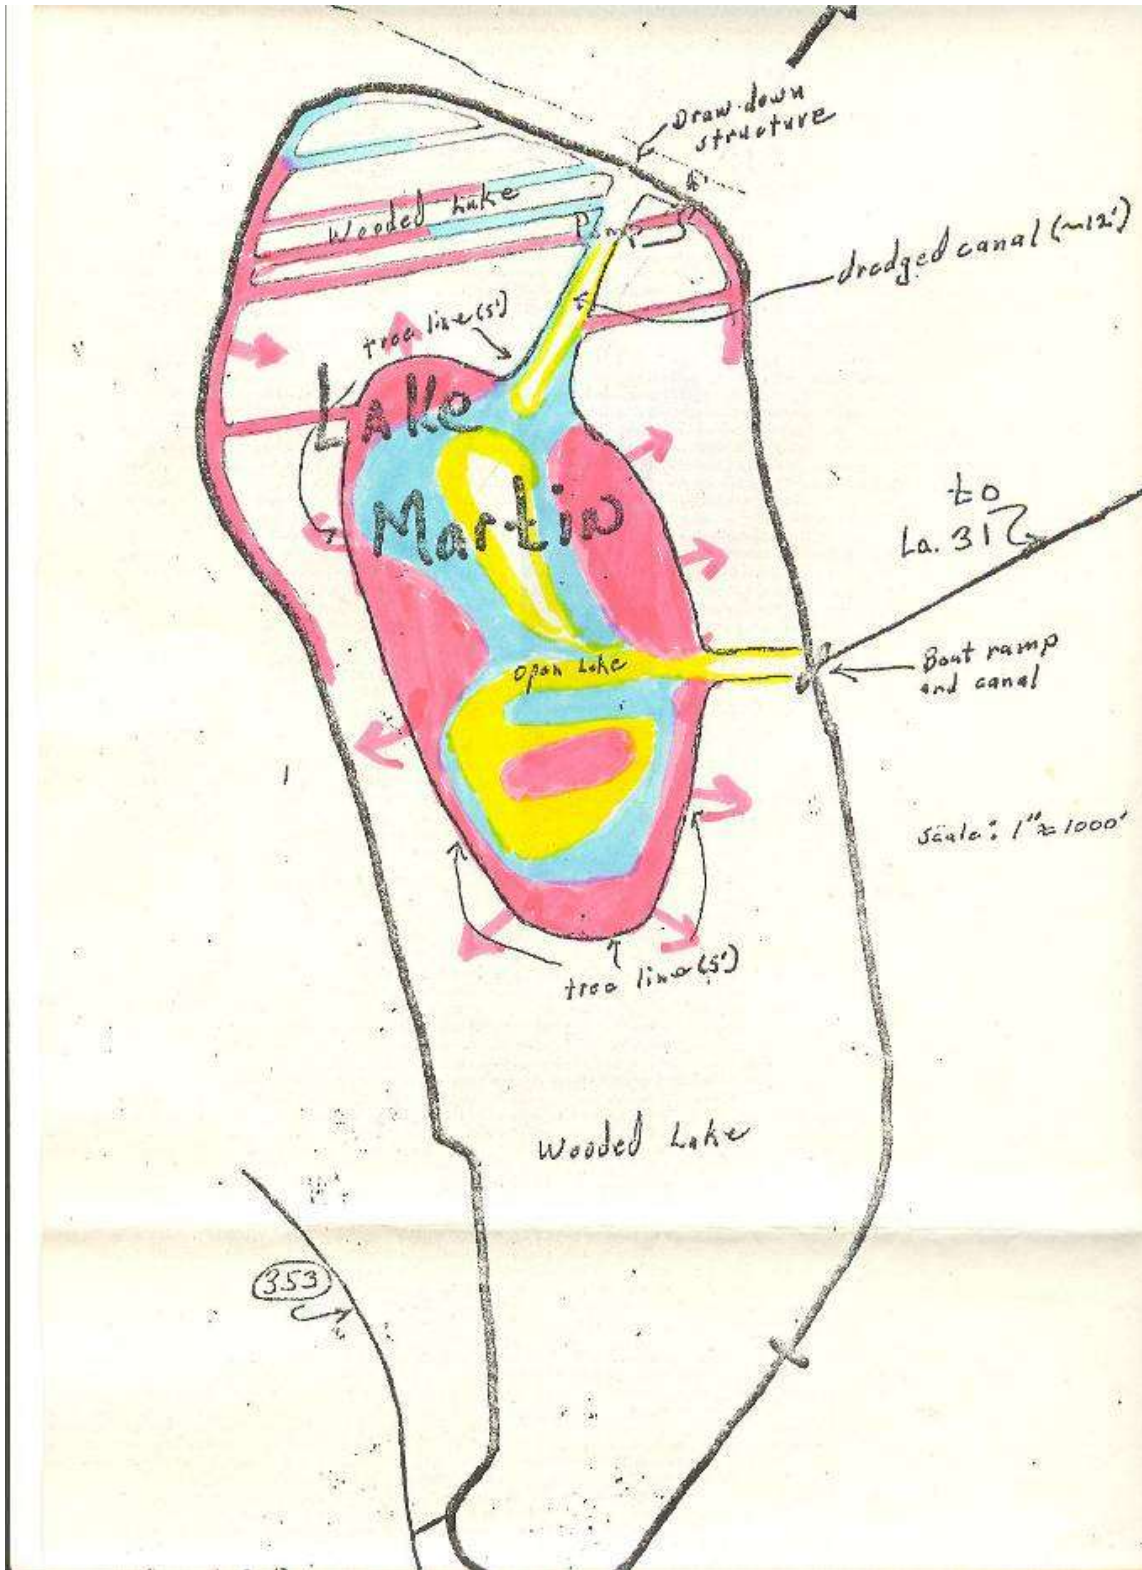 Draw-down
structure
Wooded Lake
Pump
dredged canal (~12')
tree line (5')
Lake
Martin
to
La. 31
Open Lake
Boat ramp
and canal
Scale: 1" ≈ 1000'
tree line (5')
Wooded Lake
353